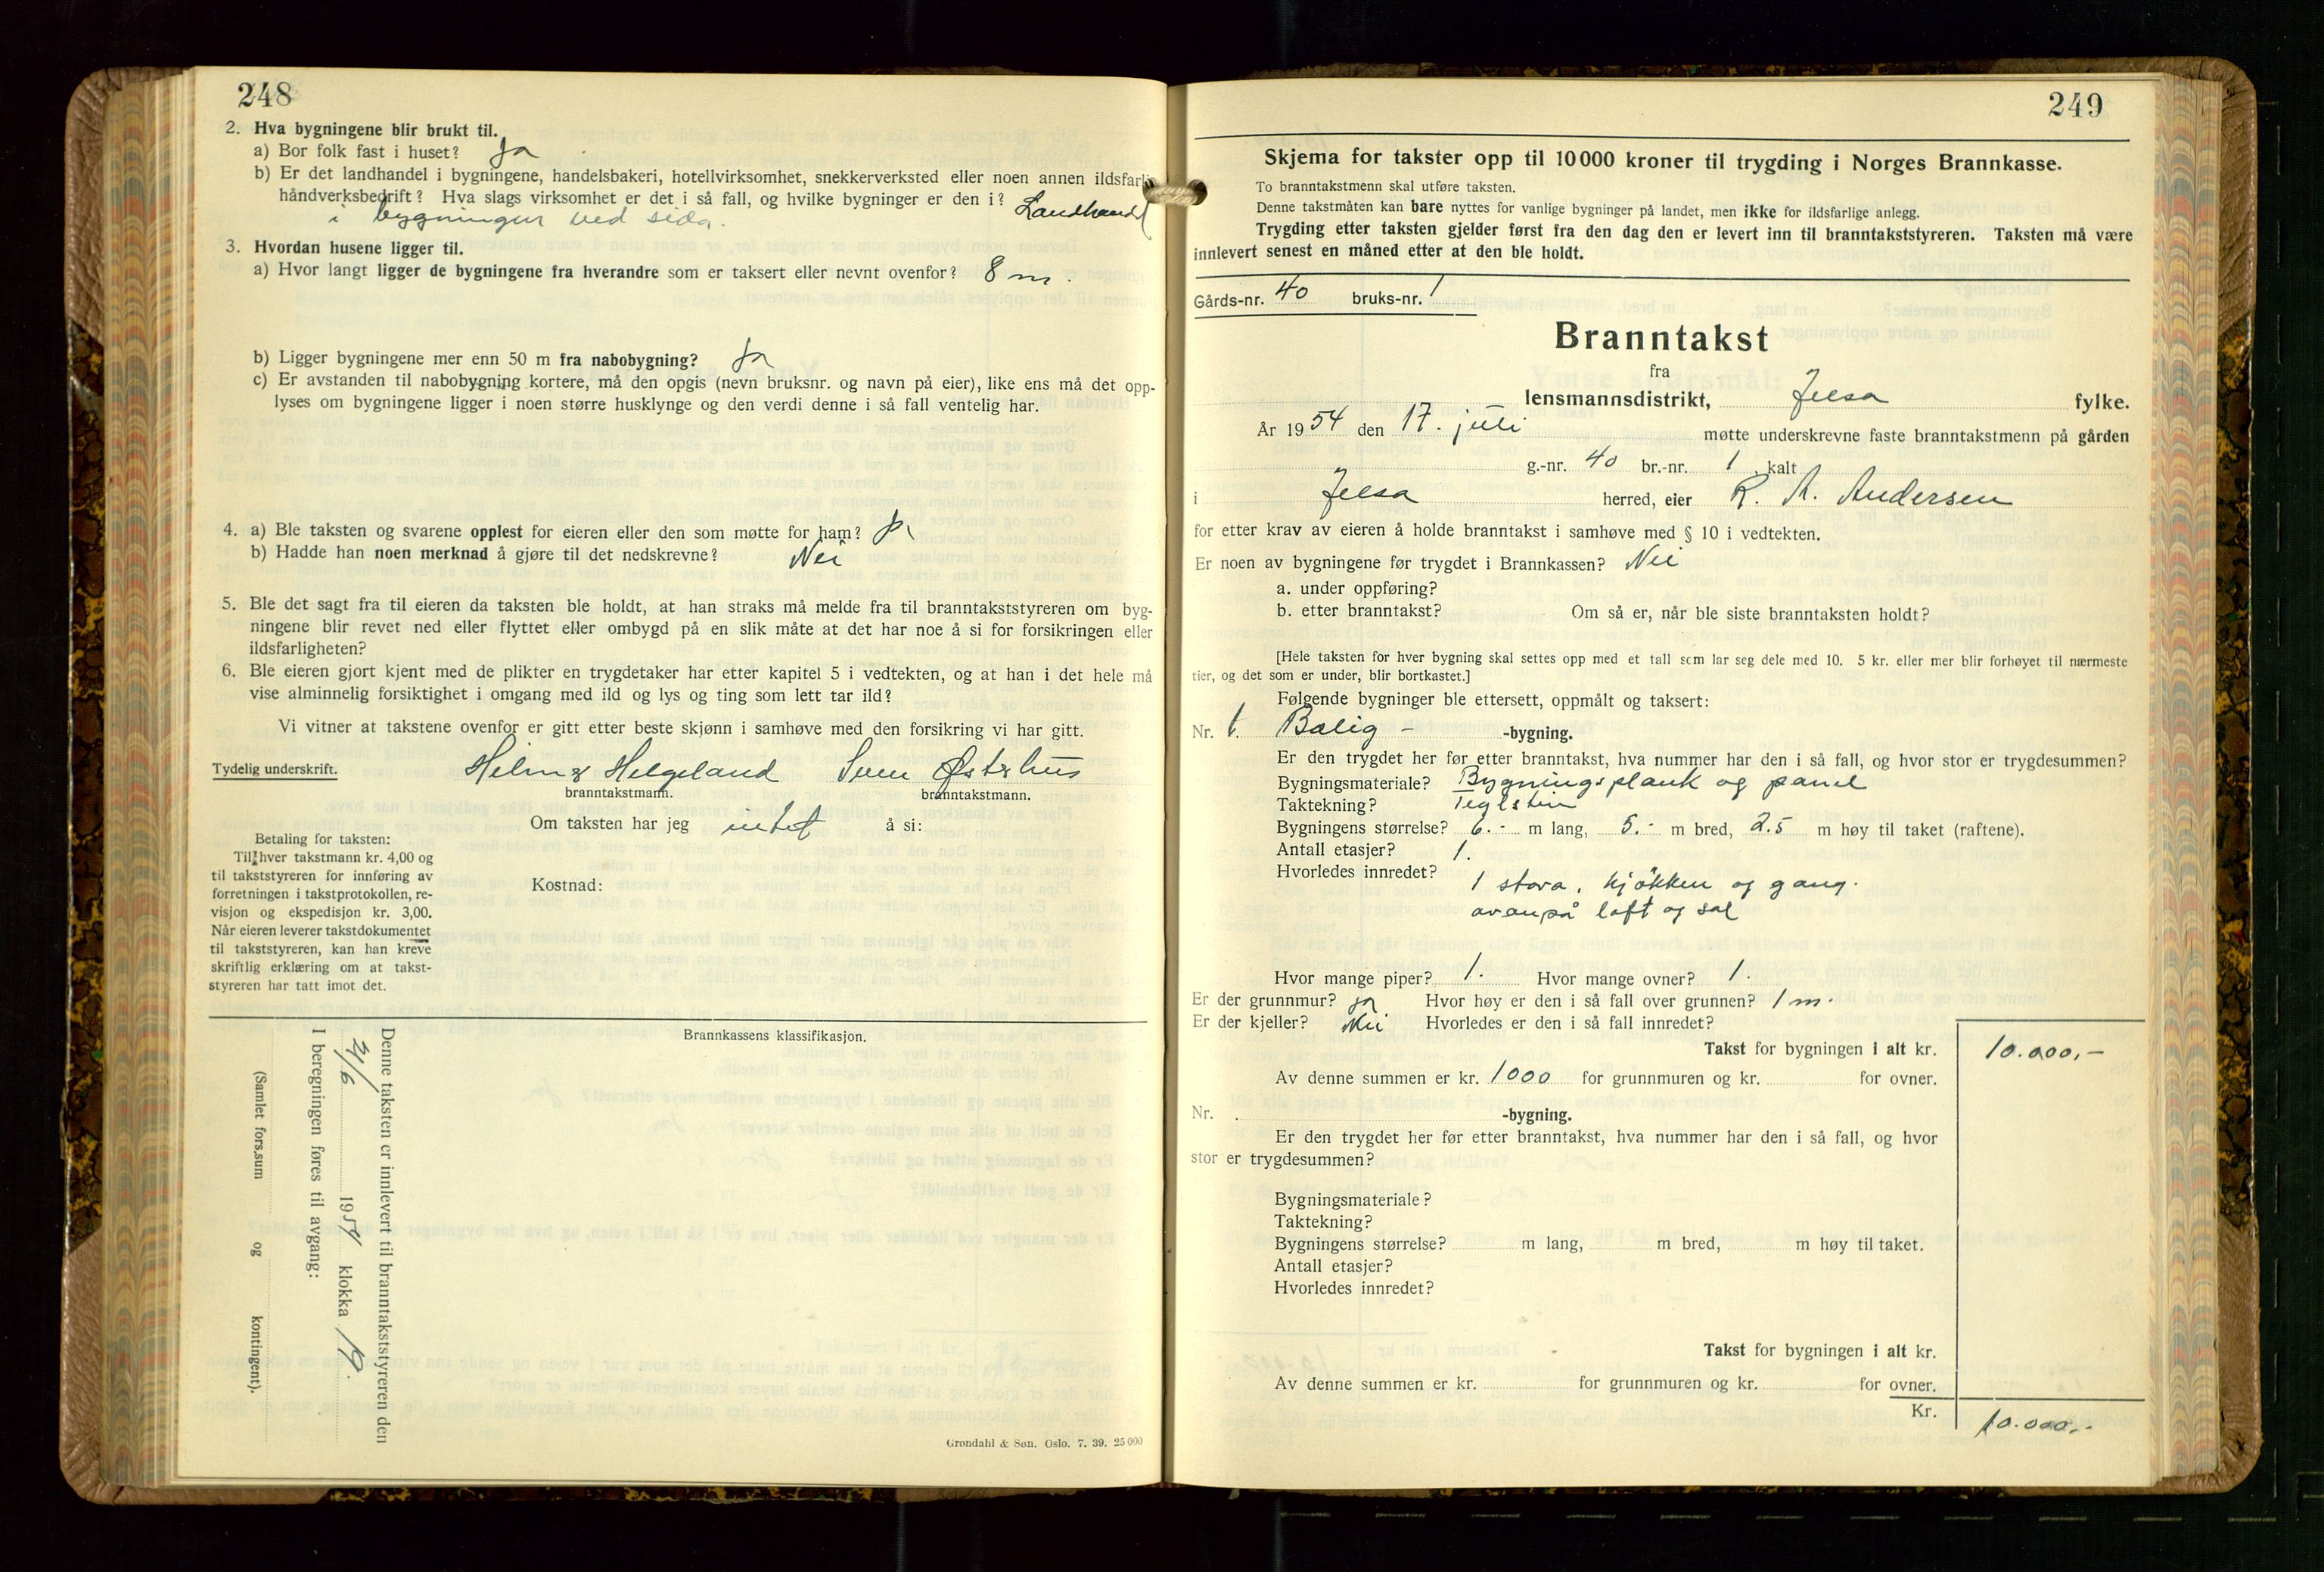 248
2. Hva bygningene blir brukt til.
a) Bor folk fast i huset? Ja
b) Er det landhandel i bygningene, handelsbakeri, hotellvirksomhet, snekkerverksted eller noen annen ildsfarlig
håndverksbedrift? Hva slags virksomhet er det i så fall, og hvilke bygninger er den i? Landhandel
i bygningen ved sida.
3. Hvordan husene ligger til.
a) Hvor langt ligger de bygningene fra hverandre som er taksert eller nevnt ovenfor? 8 m.
b) Ligger bygningene mer enn 50 m fra nabobygning? Ja
c) Er avstanden til nabobygning kortere, må den opgis (nevn bruksnr. og navn på eier), like ens må det opp-
lyses om bygningene ligger i noen større husklynge og den verdi denne i så fall ventelig har.
4. a) Ble taksten og svarene opplest for eieren eller den som møtte for ham? Ja
b) Hadde han noen merknad å gjøre til det nedskrevne? Nei
5. Ble det sagt fra til eieren da taksten ble holdt, at han straks må melde fra til branntakststyreren om byg-
ningene blir revet ned eller flyttet eller ombygd på en slik måte at det har noe å si for forsikringen eller
ildsfarligheten?
6. Ble eieren gjort kjent med de plikter en trygdetaker har etter kapitel 5 i vedtekten, og at han i det hele må
vise alminnelig forsiktighet i omgang med ild og lys og ting som lett tar ild?
Vi vitner at takstene ovenfor er gitt etter beste skjønn i samhøve med den forsikring vi har gitt.
Tydelig underskrift. Helgeland Sven Østehus
branntakstmann. branntakstmann.
Om taksten har jeg intet å si:
Betaling for taksten:
Til hver takstmann kr. 4,00 og
til takststyreren for innføring av
forretningen i takstprotokollen, re-
visjon og ekspedisjon kr. 3,00.
Når eieren leverer takstdokumentet
til takststyreren, kan han kreve
skriftlig erklæring om at takst-
styreren har tatt imot det.
Kostnad:
Brannkassens klassifikasjon.
Denne taksten er innlevert til branntakststyreren den
2/6 1954 klokka 19.
I beregningen føres til avgang:
(Samlet fors.sum og kontingent).
Grøndahl & Søn. Oslo. 7. 39. 25 000
249
Skjema for takster opp til 10 000 kroner til trygding i Norges Brannkasse.
To branntakstmenn skal utføre taksten.
Denne takstmåten kan bare nyttes for vanlige bygninger på landet, men ikke for ildsfarlige anlegg.
Trygding etter taksten gjelder først fra den dag den er levert inn til branntakststyreren. Taksten må være
innlevert senest en måned etter at den ble holdt.
Gårds-nr. 40 bruks-nr. 1
Branntakst
fra
lensmannsdistrikt, Jelsa fylke.
År 1954 den 17. juli møtte underskrevne faste branntakstmenn på gården
g.-nr. 40 br.-nr. 1 kalt
i Jelsa herred, eier R. A. Andersen
for etter krav av eieren å holde branntakst i samhøve med § 10 i vedtekten.
Er noen av bygningene før trygdet i Brannkassen? Nei
a. under oppføring?
b. etter branntakst? Om så er, når ble siste branntaksten holdt?
[Hele taksten for hver bygning skal settes opp med et tall som lar seg dele med 10. 5 kr. eller mer blir forhøyet til nærmeste
tier, og det som er under, blir bortkastet.]
Følgende bygninger ble ettersett, oppmålt og taksert:
Nr. 1. Bolig - -bygning.
Er den trygdet her før etter branntakst, hva nummer har den i så fall, og hvor stor er trygdesummen?
Bygningsmateriale? Bygningsplank og panel
Taktekning? Teglstein
Bygningens størrelse? 6.- m lang, 5.- m bred, 2.5 m høy til taket (raftene).
Antall etasjer? 1.
Hvorledes innredet? 1 stova, kjøkken og gang.
ovanpå loft og sal
Hvor mange piper? 1. Hvor mange ovner? 1.
Er der grunnmur? ja Hvor høy er den i så fall over grunnen? 1 m.
Er der kjeller? Nei Hvorledes er den i så fall innredet?
Takst for bygningen i alt kr. 10.000,-
Av denne summen er kr. 1000 for grunnmuren og kr. for ovner.
Nr. -bygning.
Er den trygdet her før etter branntakst, hva nummer har den i så fall, og hvor
stor er trygdesummen?
Bygningsmateriale?
Taktekning?
Bygningens størrelse? m lang, m bred, m høy til taket.
Antall etasjer?
Hvorledes innredet?
Takst for bygningen i alt kr.
Av denne summen er kr. for grunnmuren og kr. for ovner.
Kr. 10.000,-